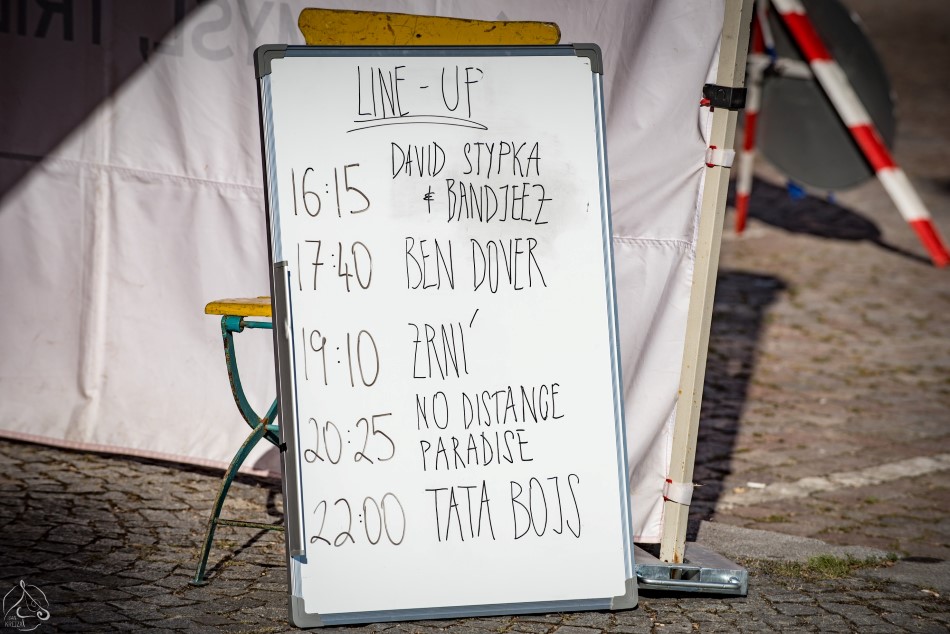 LINE-UP
16:15 DAVID STYPKA
& BANDJEEZ
17:40 BEN DOVER
19:10 ZRNÍ
20:25 NO DISTANCE
PARADISE
22:00 TATA BOJS